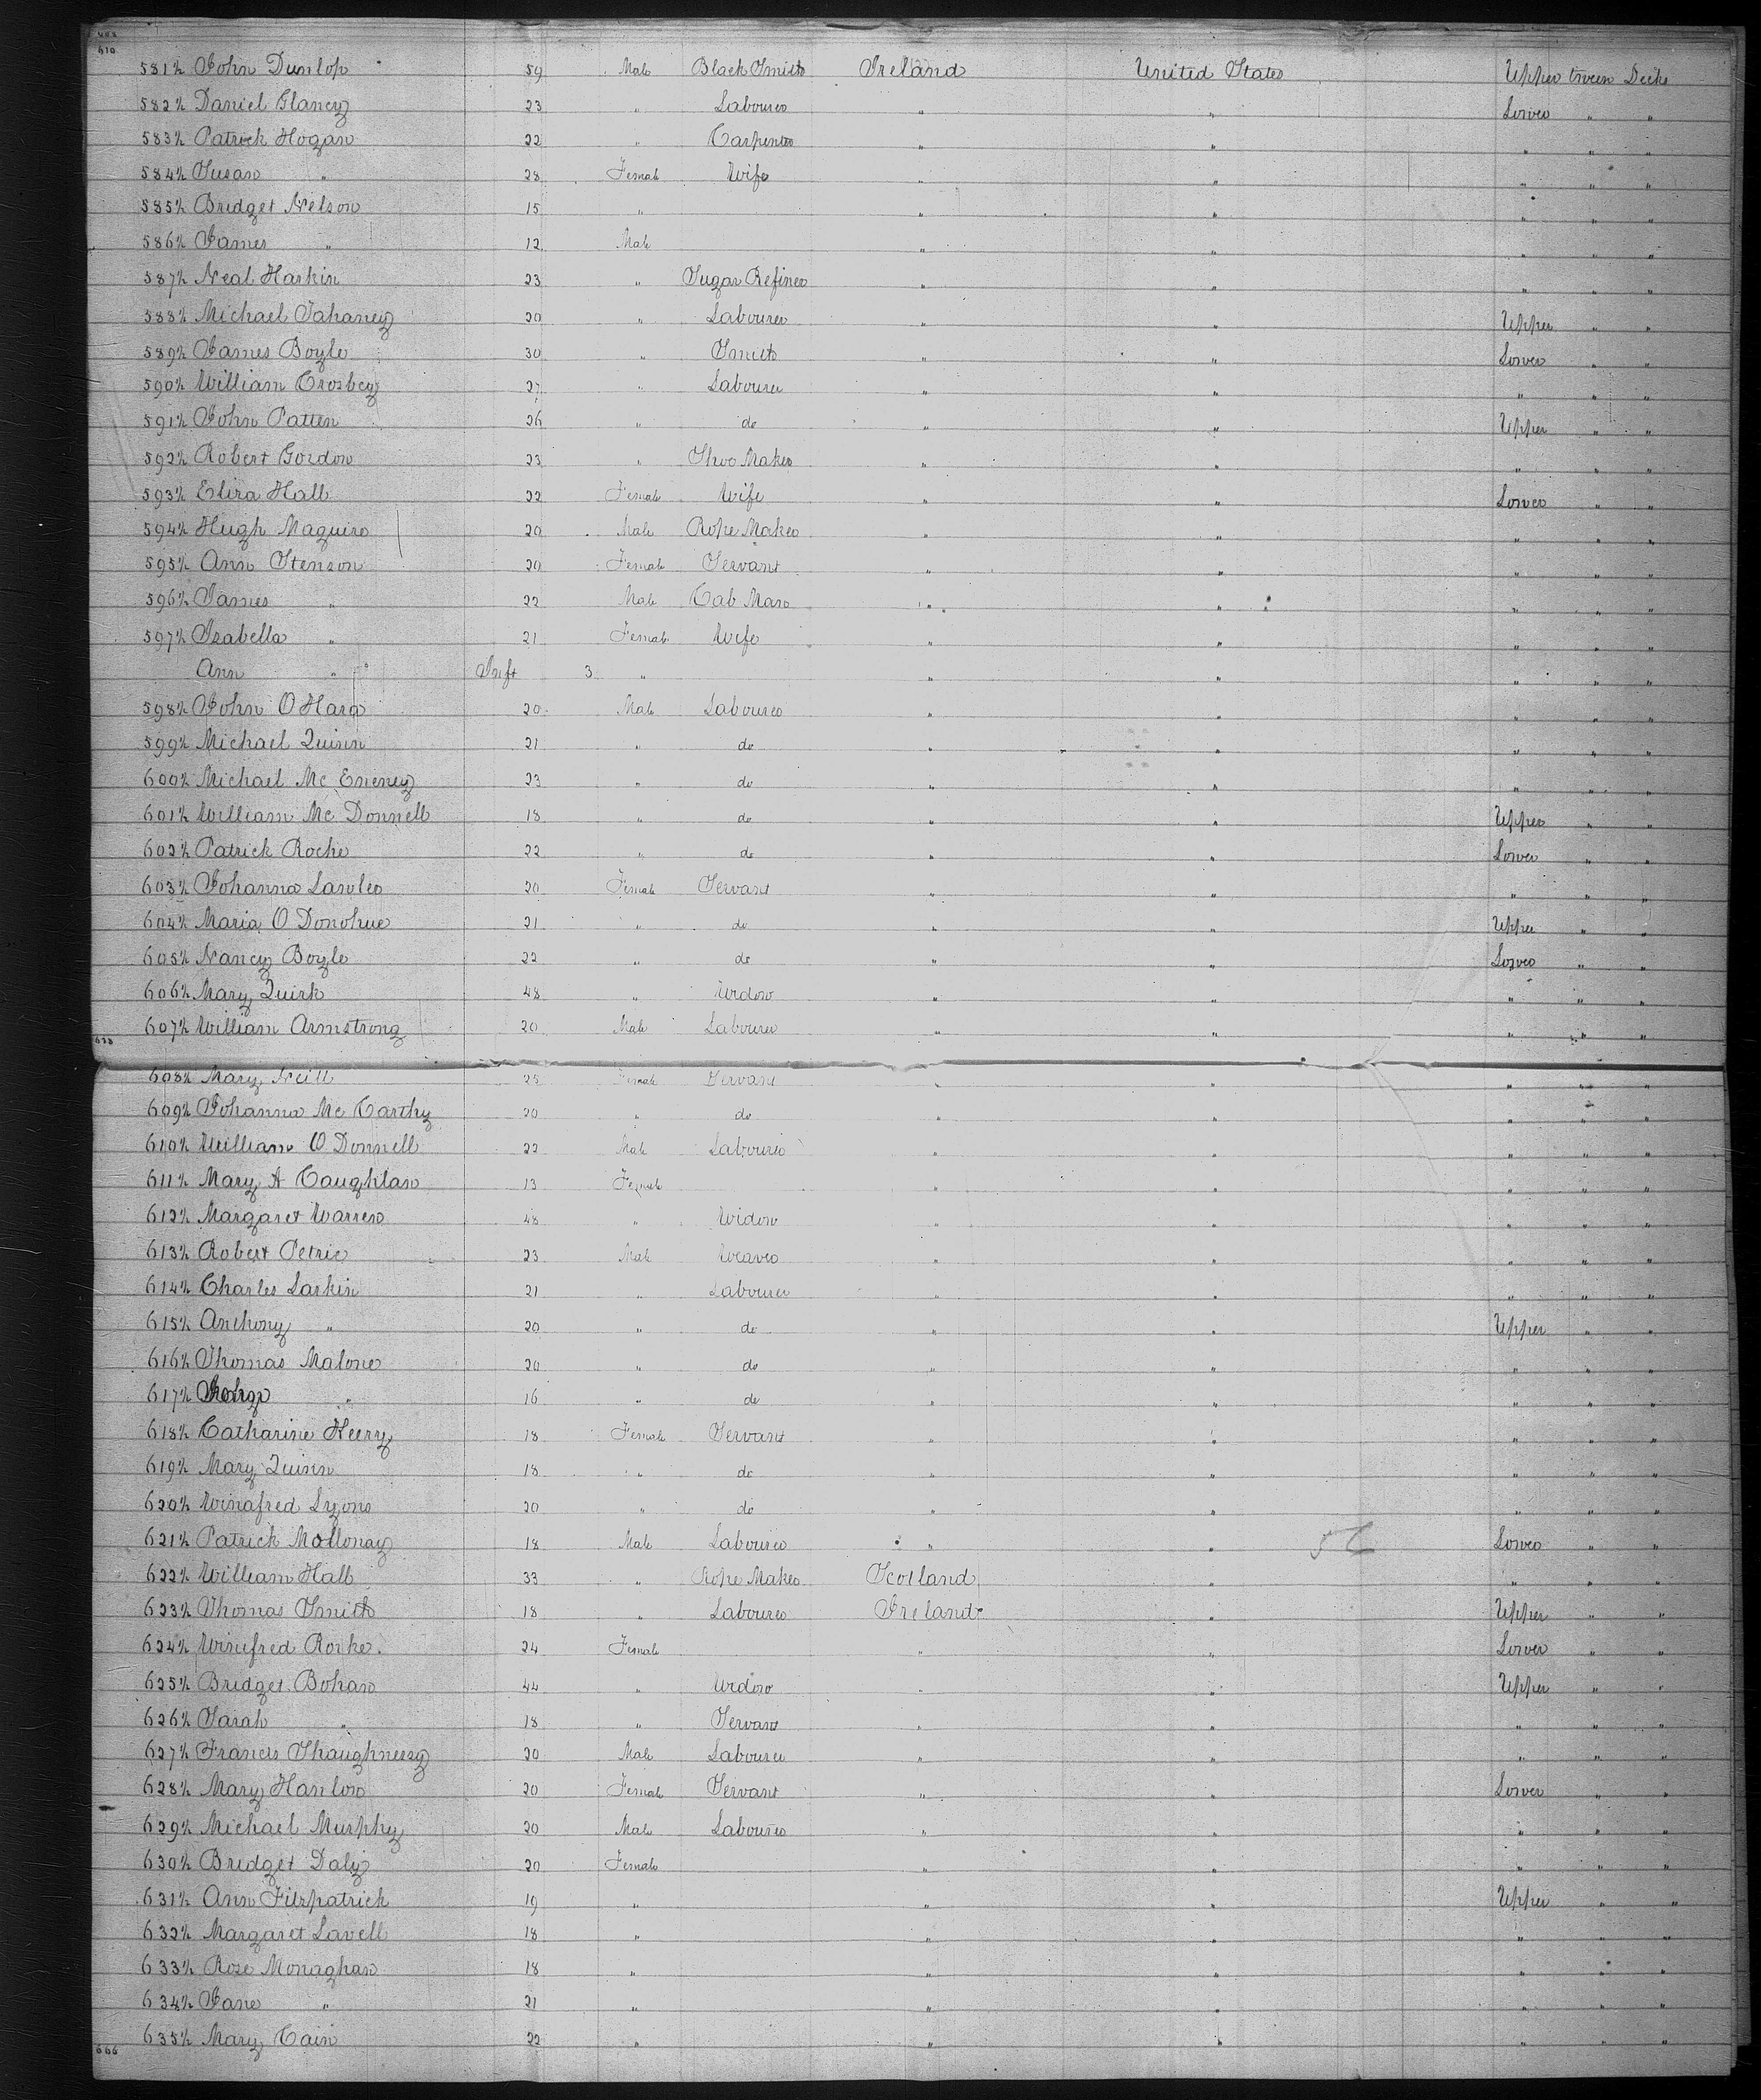 610
581½ John Dunlop 59 Male Black Smith Ireland United States Upper tween Decks
582½ Daniel Clancy 23 " Labourer " " Lower " "
583½ Patrick Hogan 22 " Carpenter " " " " "
584½ Susan " 28 Female Wife " " " " "
585½ Bridget Nelson 15 " " " " " "
586½ James " 12 Male " " " " "
587½ Neal Harkin 23 " Sugar Refiner " " " " "
588½ Michael Tahaney 20 " Labourer " " Upper " "
589½ James Boyle 30 " Smith " " Lower " "
590½ William Crosbey 27 " Labourer " " " " "
591½ John Patten 26 " do " " Upper " "
592½ Robert Gordon 23 " Shoe Maker " " " " "
593½ Eliza Hall 22 Female Wife " " Lower " "
594½ Hugh Maguire 20 Male Rope Maker " " " " "
595½ Ann Stenson 20 Female Servant " " " " "
596½ James " 22 Male Cab Man " " " " "
597½ Isabella " 21 Female Wife " " " " "
Ann " Inft 3 " " " " " "
598½ John O Hara 20 Male Labourer " " " " "
599½ Michael Quinn 21 " do " " " " "
600½ Michael Mc Eneney 23 " do " " " " "
601½ William Mc Donnell 18 " do " " Upper " "
602½ Patrick Roche 22 " do " " Lower " "
603½ Johanna Lawler 20 Female Servant " " " " "
604½ Maria O Donohue 21 " do " " Upper " "
605½ Nancy Boyle 22 " do " " Lower " "
606½ Mary Quirk 48 " Widow " " " " "
607½ William Armstrong 20 Male Labourer " " " " "
638
608½ Mary Neill Female Servant " " " " "
609½ Johanna Mc Carthy 20 " do " " " " "
610½ William O Donnell 22 Male Labourer " " " " "
611½ Mary A Caughlan 13 Female " " " " "
612½ Margaret Warren 48 " Widow " " " " "
613½ Robert Petrie 23 Male Weaver " " " " "
614½ Charles Larkin 21 " Labourer " " " " "
615½ Anthony " 20 " do " " Upper " "
616½ Thomas Malone 20 " do " " " " "
617½ " 16 " do " " " " "
618½ Catharine Heery 18 Female Servant " " " " "
619½ Mary Quinn 18 " do " " " " "
620½ Winafred Lyons 20 " do " " " " "
621½ Patrick Mollonay 18 Male Labourer " " Lower " "
622½ William Hall 33 " Rope Maker Scotland " " " "
623½ Thomas Smith 18 " Labourer Ireland " Upper " "
624½ Winefred Rorke 24 Female " " Lower " "
625½ Bridget Bohan 44 " Widow " " Upper " "
626½ Sarah " 18 " Servant " " " " "
627½ Francis Shaughnessy 20 Male Labourer " " " " "
628½ Mary Hanlon 20 Female Servant " " Lower " "
629½ Michael Murphy 20 Male Labourer " " " " "
630½ Bridget Daly 20 Female " " " " "
631½ Ann Fitzpatrick 19 " " " Upper " "
632½ Margaret Lavell 18 " " " " " "
633½ Rose Monaghan 18 " " " " " "
634½ Jane " 21 " " " " " "
635½ Mary Cain 22 " " " " " "
666